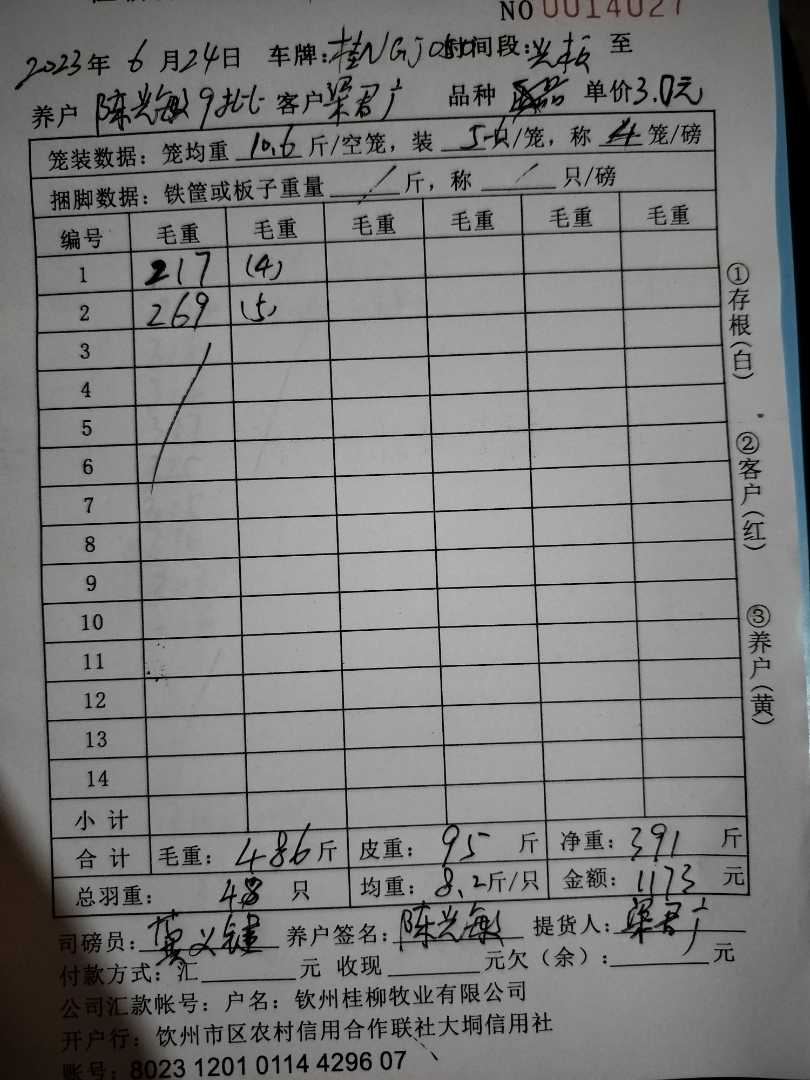 NO 0014027
2023年 6 月 24日 车牌:桂NGJ 时间段: 至
养户 陈光敏 9批 客户 梁君广 品种 单价3.0元
笼装数据: 笼均重 10.6 斤/空笼, 装 5 只/笼, 称 4 笼/磅
捆脚数据: 铁筐或板子重量 / 斤, 称 / 只/磅
编号 毛重 毛重 毛重 毛重 毛重 毛重
1 217 (4)
2 269 (5)
3
4
5
6
7
8
9
10
11
12
13
14
小计
合计 毛重: 486斤 皮重: 95 斤 净重: 391 斤
总羽重: 48 只 均重: 8.2斤/只 金额: 1173 元
司磅员: 养户签名: 陈光敏 提货人: 梁君广
付款方式: 汇 元 收现 元欠(余): 元
公司汇款帐号: 户名: 钦州桂柳牧业有限公司
开户行: 钦州市区农村信用合作联社大垌信用社
账号: 8023 1201 0114 4296 07
①存根(白)
②客户(红)
③养户(黄)